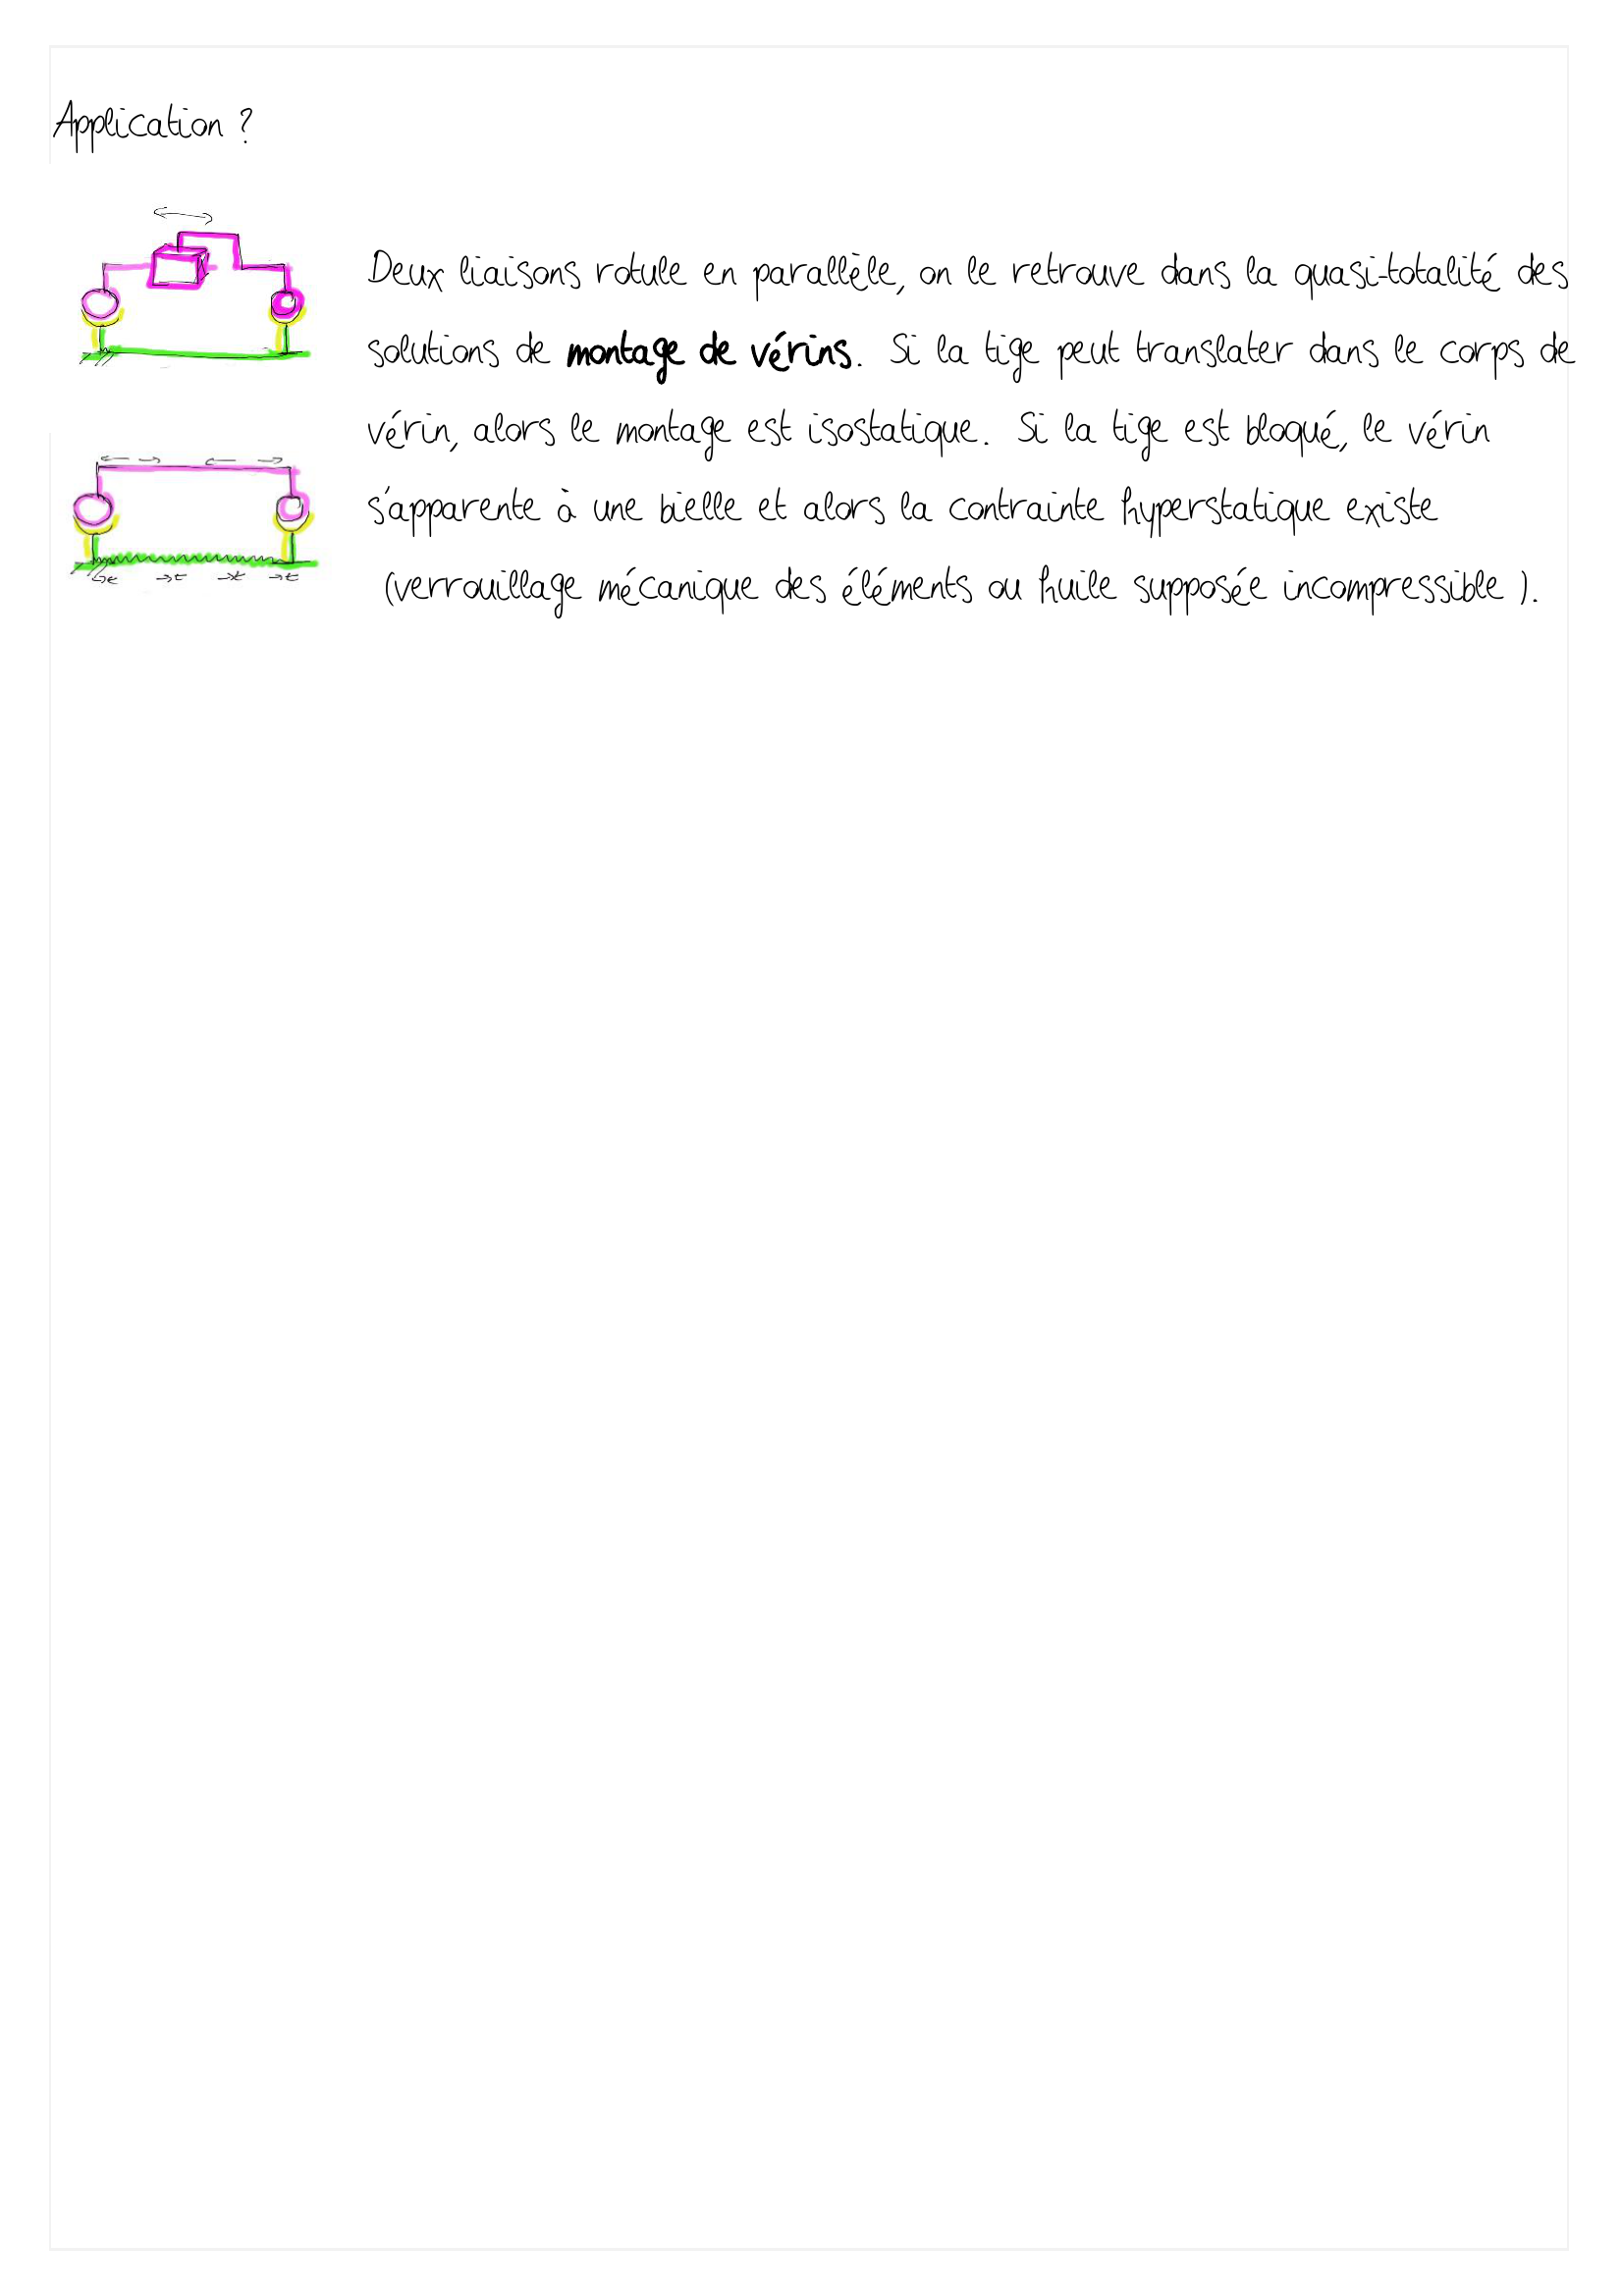 Application ?
Deux liaisons rotule en parallèle, on le retrouve dans la quasi-totalité des
solutions de montage de vérins. Si la tige peut translater dans le corps de
vérin, alors le montage est isostatique. Si la tige est bloqué, le vérin
s'apparente à une bielle et alors la contrainte hyperstatique existe
(verrouillage mécanique des éléments ou huile supposée incompressible ).